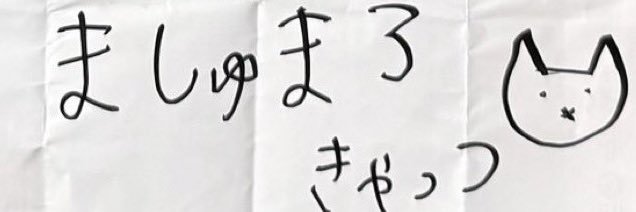 ましゅまろ
きゃっつ